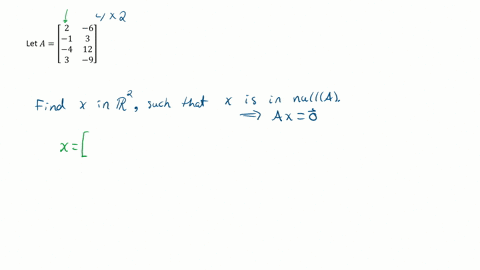 ↓ 4 x 2
Let A = [2 -6
-1 3
-4 12
3 -9]
Find x in ℝ², such that x is in null(A).
⟹ Ax = 0⃗
x = [